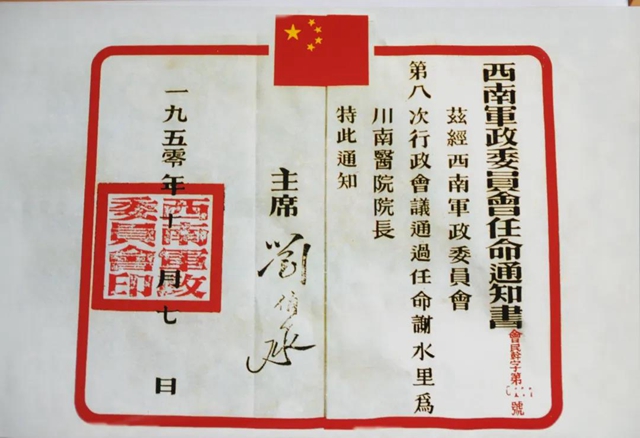 西南軍政委員會任命通知書
會民幹字第號
茲經西南軍政委員會
第八次行政會議通過任命謝水里爲
川南醫院院長
特此通知
主席 劉伯承
一九五零年十一月七日
西南軍政委員會印